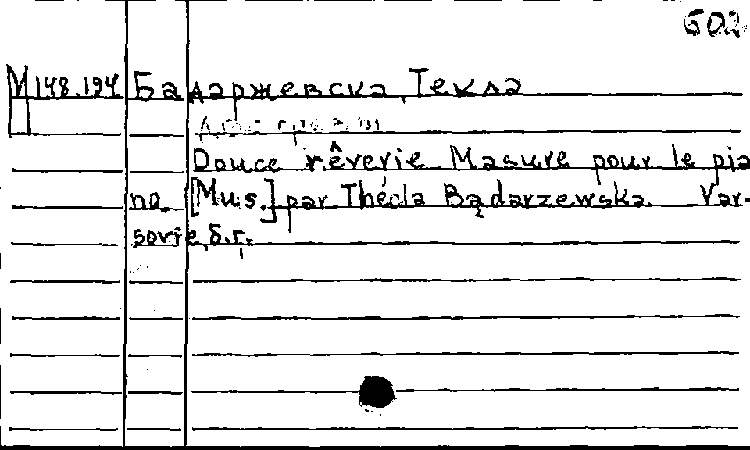 602
М148.194 Бадаржевска, Текла
Douce rêverie Masure pour le pia-
no. [Mus.] par Thécla Bądarzewska. Var-
sovie, б.г.